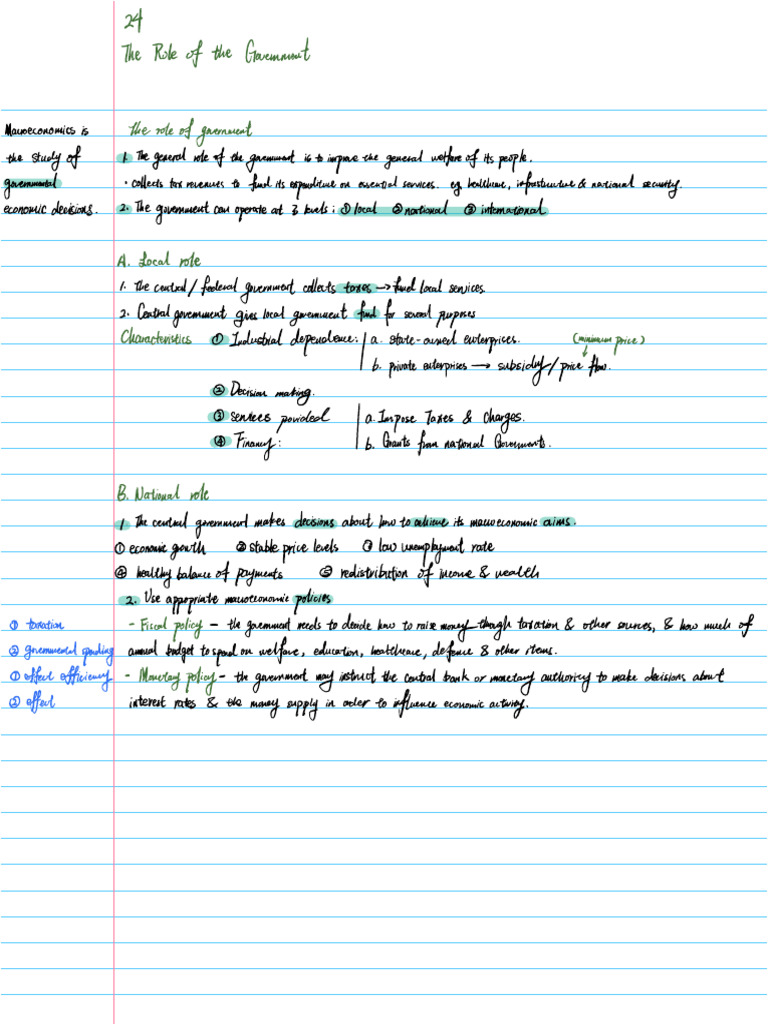 24
The Role of the Government
Macroeconomics is
the study of
governmental
economic decisions.
The role of government
1. The general role of the government is to improve the general welfare of its people.
· collects tax revenues to fund its expenditure on essential services. eg healthcare, infrastructure & national security.
2. The government can operate at 3 levels: ① local ② national ③ international
A. Local role
1. The central / federal government collects taxes → fund local services.
2. Central government gives local government fund for several purposes
Characteristics ① Industrial dependence: a. state-owned enterprises. (minimum price)
b. private enterprises → subsidy / price floor.
② Decision making.
③ services povided a. Impose Taxes & Charges.
④ Financy: b. Grants from national Governments.
B. National role
1. The central government makes decisions about how to achieve its macroeconomic aims.
① economic growth ② stable price levels ③ low unemployment rate
④ healthy balance of payments ⑤ redistribution of income & wealth
2. Use appropriate macroeconomic policies
① taxation
② governmental spending
- Fiscal policy - the government needs to decide how to raise money though taxation & other sources, & how much of
annual budget to spend on welfare, education, healthcare, defence & other items.
① effect efficiency
② effect
- Monetary policy - the government may instruct the central bank or monetary authority to make decisions about
interest rates & the money supply in order to influence economic activity.